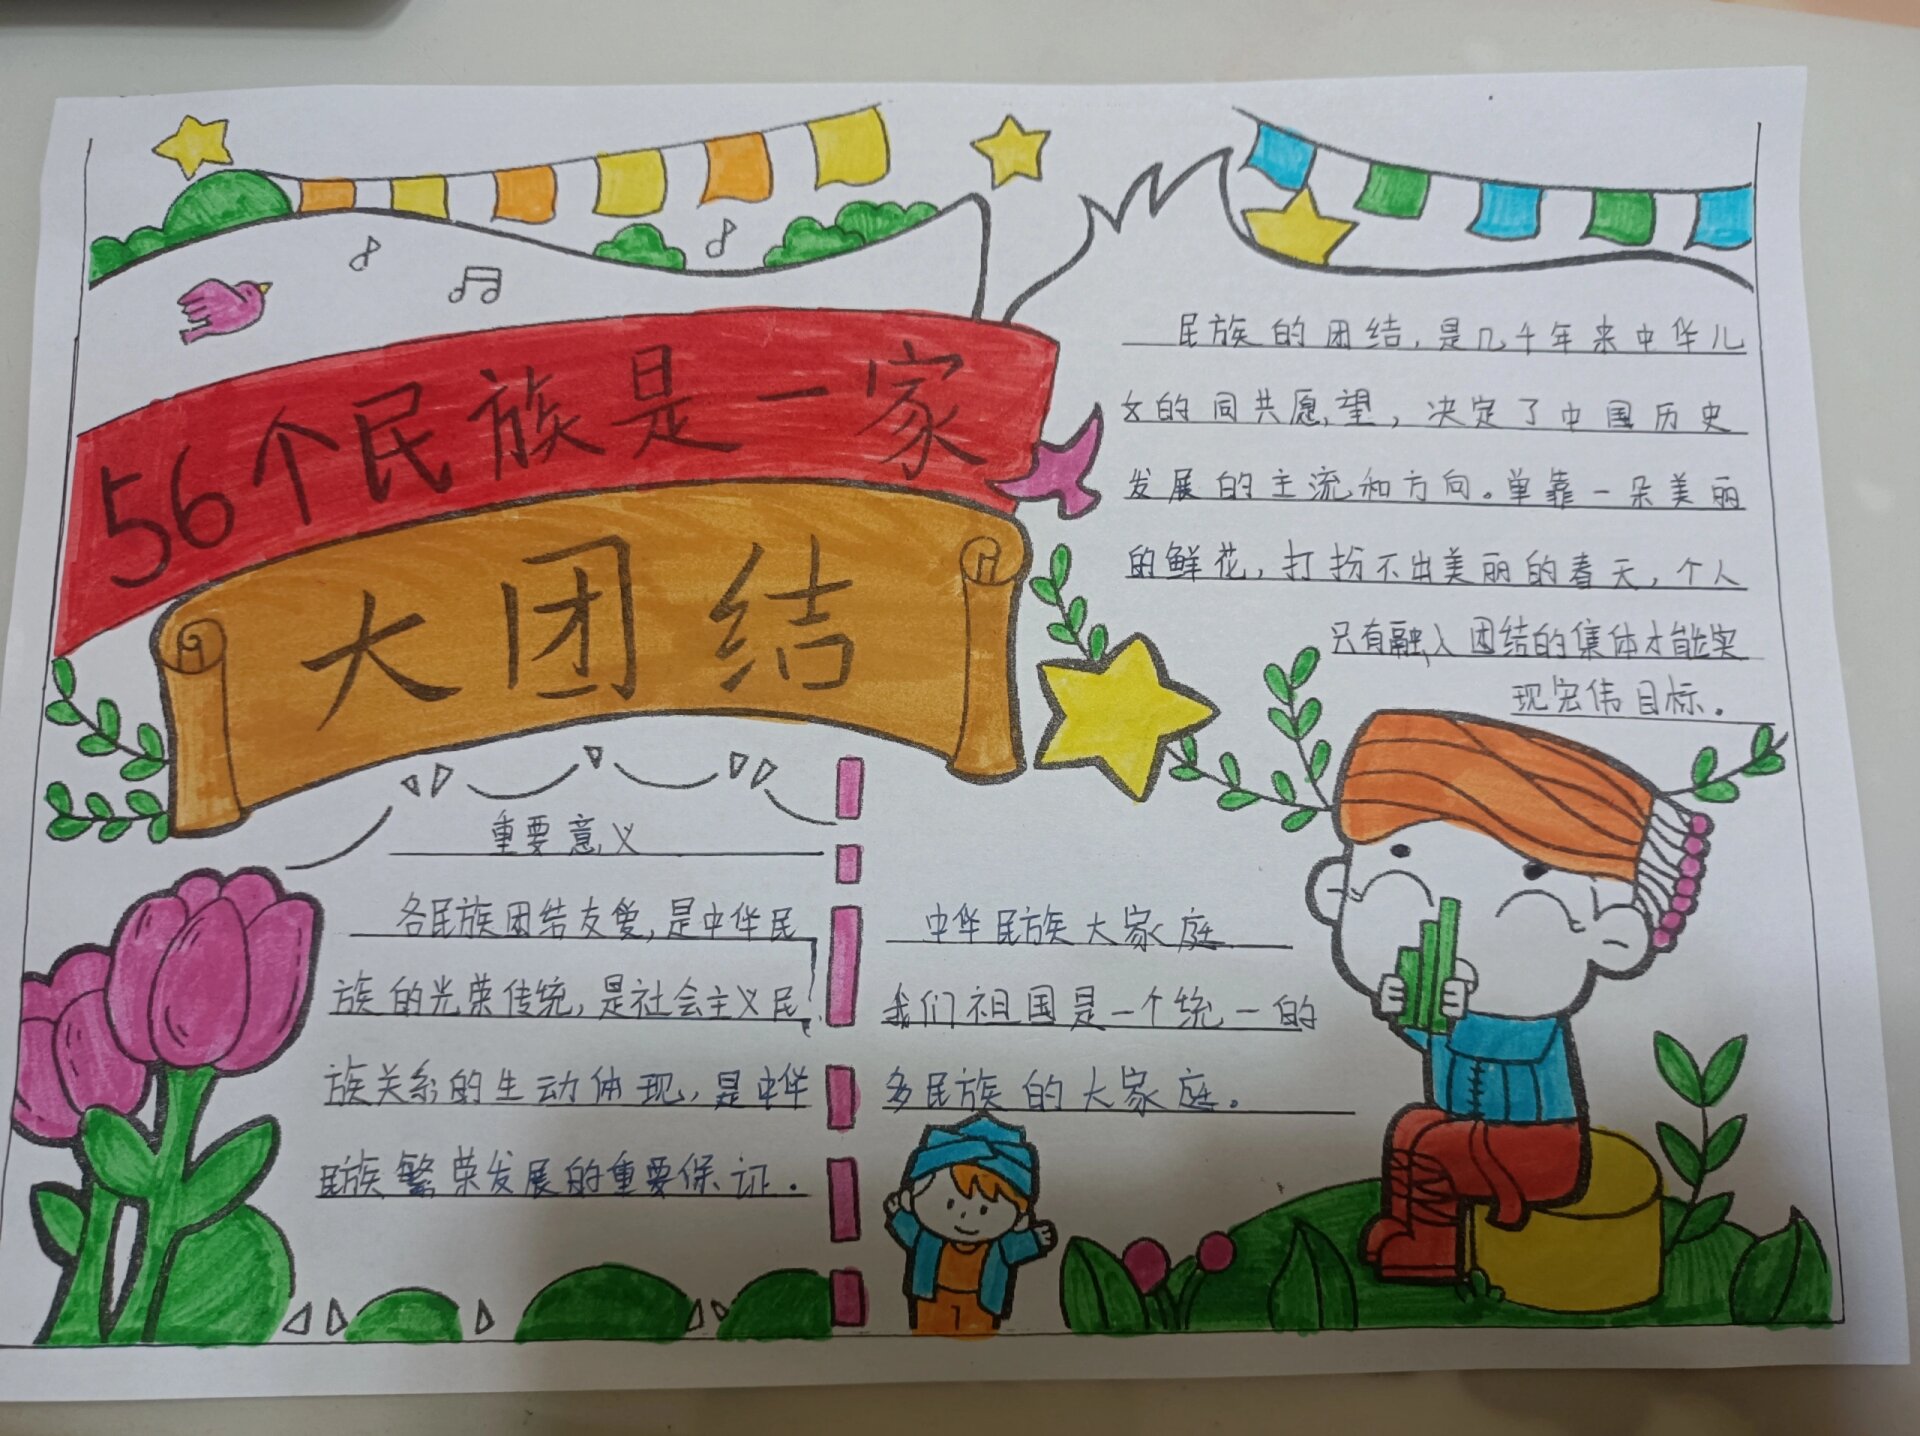 56个民族是一家
大团结
民族的团结，是几千年来中华儿
女的同共愿望，决定了中国历史
发展的主流和方向。单靠一朵美丽
的鲜花，打扮不出美丽的春天，个人
只有融入团结的集体才能实
现宏伟目标。
重要意义
各民族团结友爱，是中华民
族的光荣传统，是社会主义民
族关系的生动体现，是中华
民族繁荣发展的重要保证。
中华民族大家庭
我们祖国是一个统一的
多民族的大家庭。